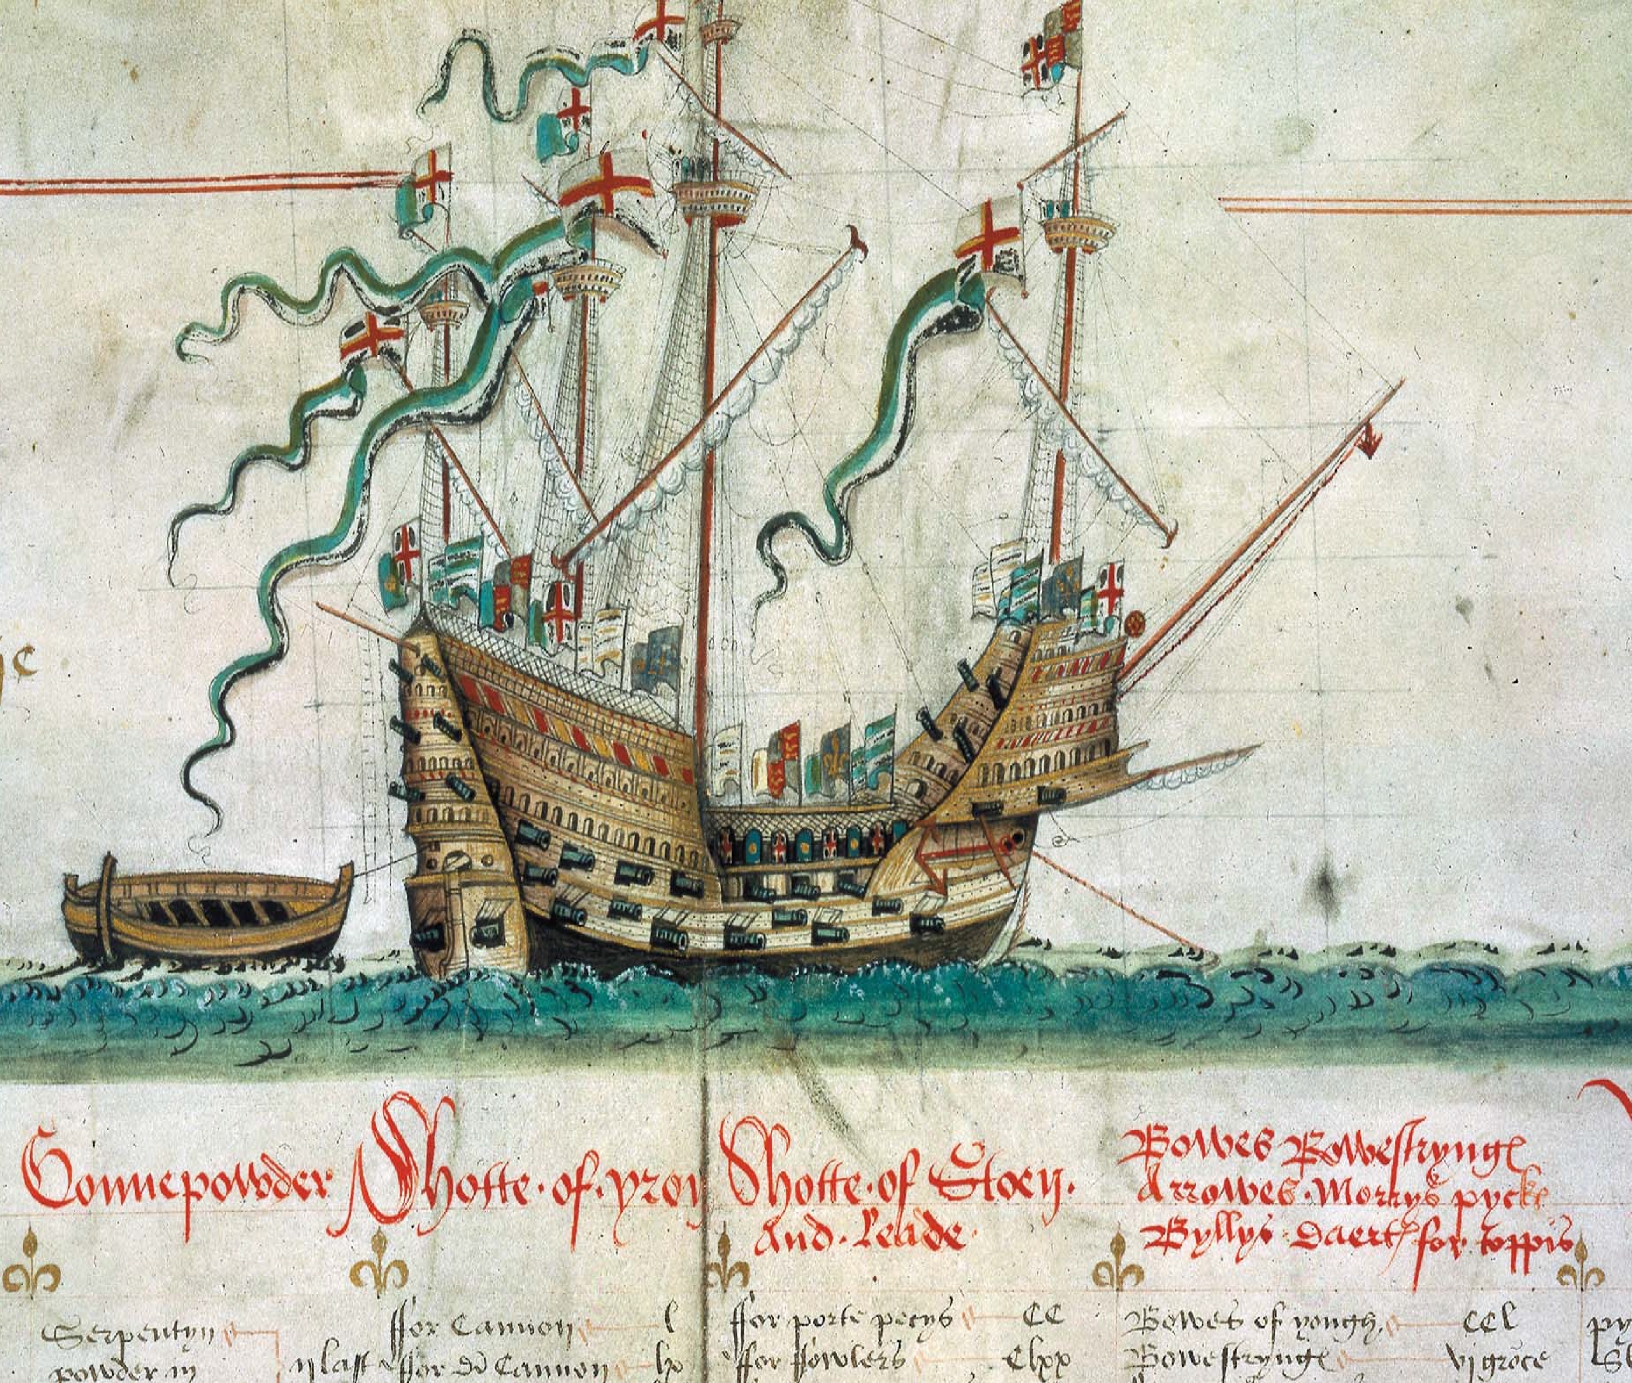 Gonnepowder Shotte·of·yron Shotte·of Stoen·
And·Leade
Bowes Bowestryngs
Arrowes·Morrys pyckes
Byllys Daerts for toppis
Serpentyn
powder in ij last
for Cannon l
for di Cannon lx
for porte pecys CC
for fowlers Clxx
Bowes of yough CCl
Bowestryngs vi groce
py